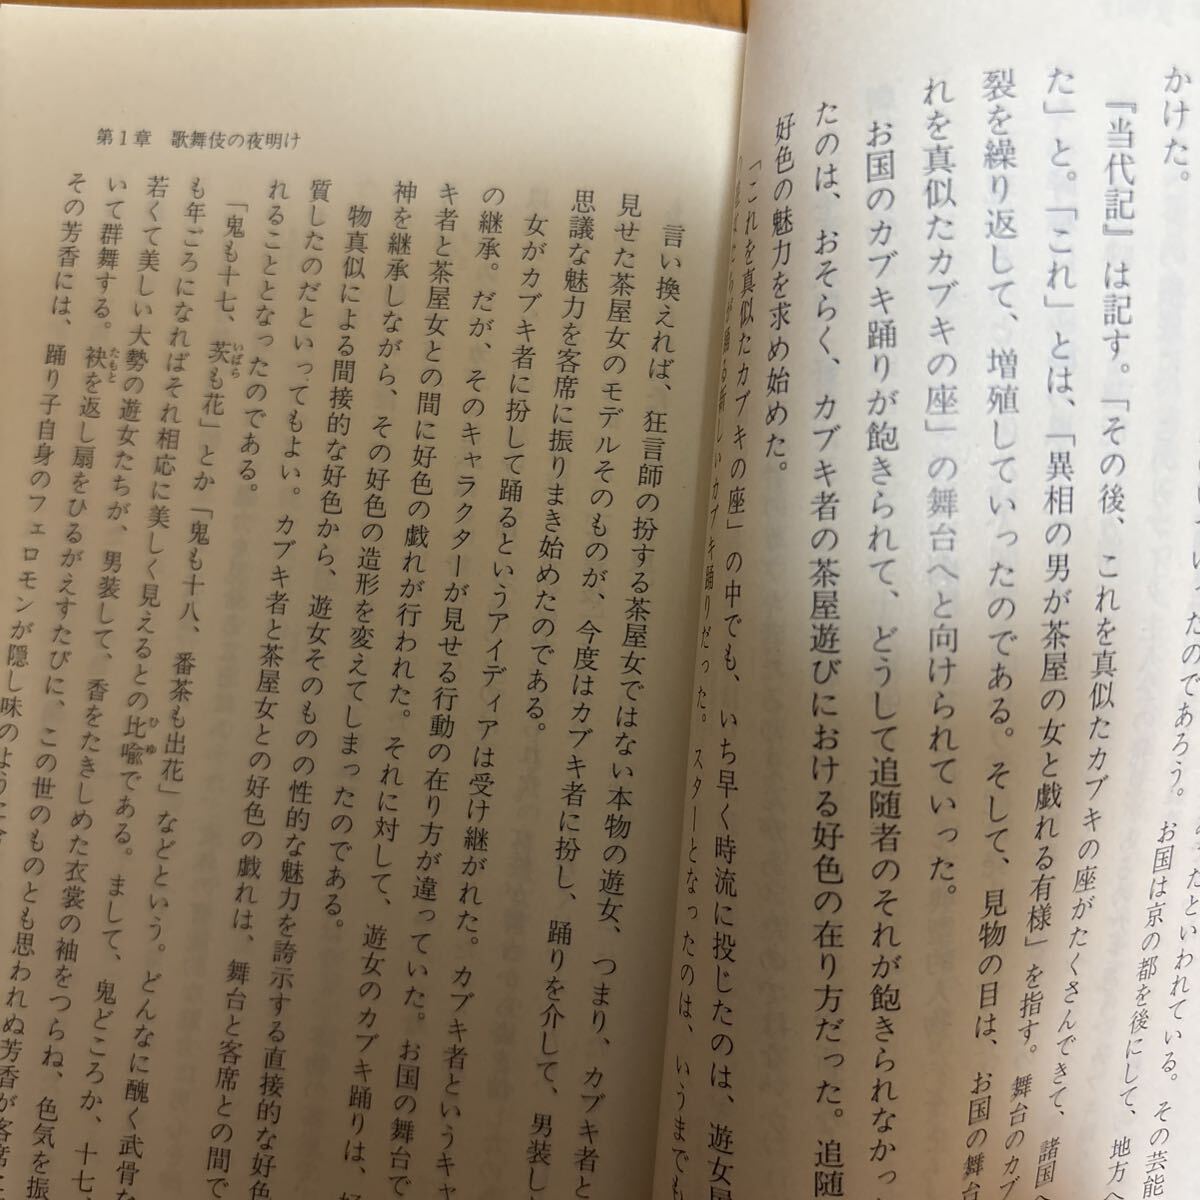 かけた。
『当代記』は記す。「その後、これを真似たカブキの座がたくさんできて、諸国
た」と。「これ」とは、「異相の男が茶屋の女と戯れる有様」を指す。舞台のカブ
裂を繰り返して、増殖していったのである。そして、見物の目は、お国の舞
れを真似たカブキの座」の舞台へと向けられていった。
お国のカブキ踊りが飽きられて、どうして追随者のそれが飽きられなかっ
たのは、おそらく、カブキ者の茶屋遊びにおける好色の在り方だった。追随
好色の魅力を求め始めた。
「これを真似たカブキの座」の中でも、いち早く時流に投じたのは、遊女屋
踊る新しいカブキ踊りだった。スターとなったのは、いうまでも
第1章 歌舞伎の夜明け
言い換えれば、狂言師の扮する茶屋女ではない本物の遊女、つまり、カブキ者と
見せた茶屋女のモデルそのものが、今度はカブキ者に扮し、踊りを介して、男装し
思議な魅力を客席に振りまき始めたのである。
女がカブキ者に扮して踊るというアイディアは受け継がれた。カブキ者というキャ
の継承。だが、そのキャラクターが見せる行動の在り方が違っていた。お国の舞台で
キ者と茶屋女との間に好色の戯れが行われた。それに対して、遊女のカブキ踊りは、
神を継承しながら、その好色の造形を変えてしまったのである。
物真似による間接的な好色から、遊女そのものの性的な魅力を誇示する直接的な好色
質したのだといってもよい。カブキ者と茶屋女との好色の戯れは、舞台と客席との間で
れることとなったのである。
「鬼も十七、茨も花」とか「鬼も十八、番茶も出花」などという。どんなに醜く武骨な
も年ごろになればそれ相応に美しく見えるとの比喩である。まして、鬼どころか、十七、
若くて美しい大勢の遊女たちが、男装して、香をたきしめた衣裳の袖をつらね、色気を振
いて群舞する。袂を返し扇をひるがえすたびに、この世のものとも思われぬ芳香が客席に
その芳香には、踊り子自身のフェロモンが隠し味のように